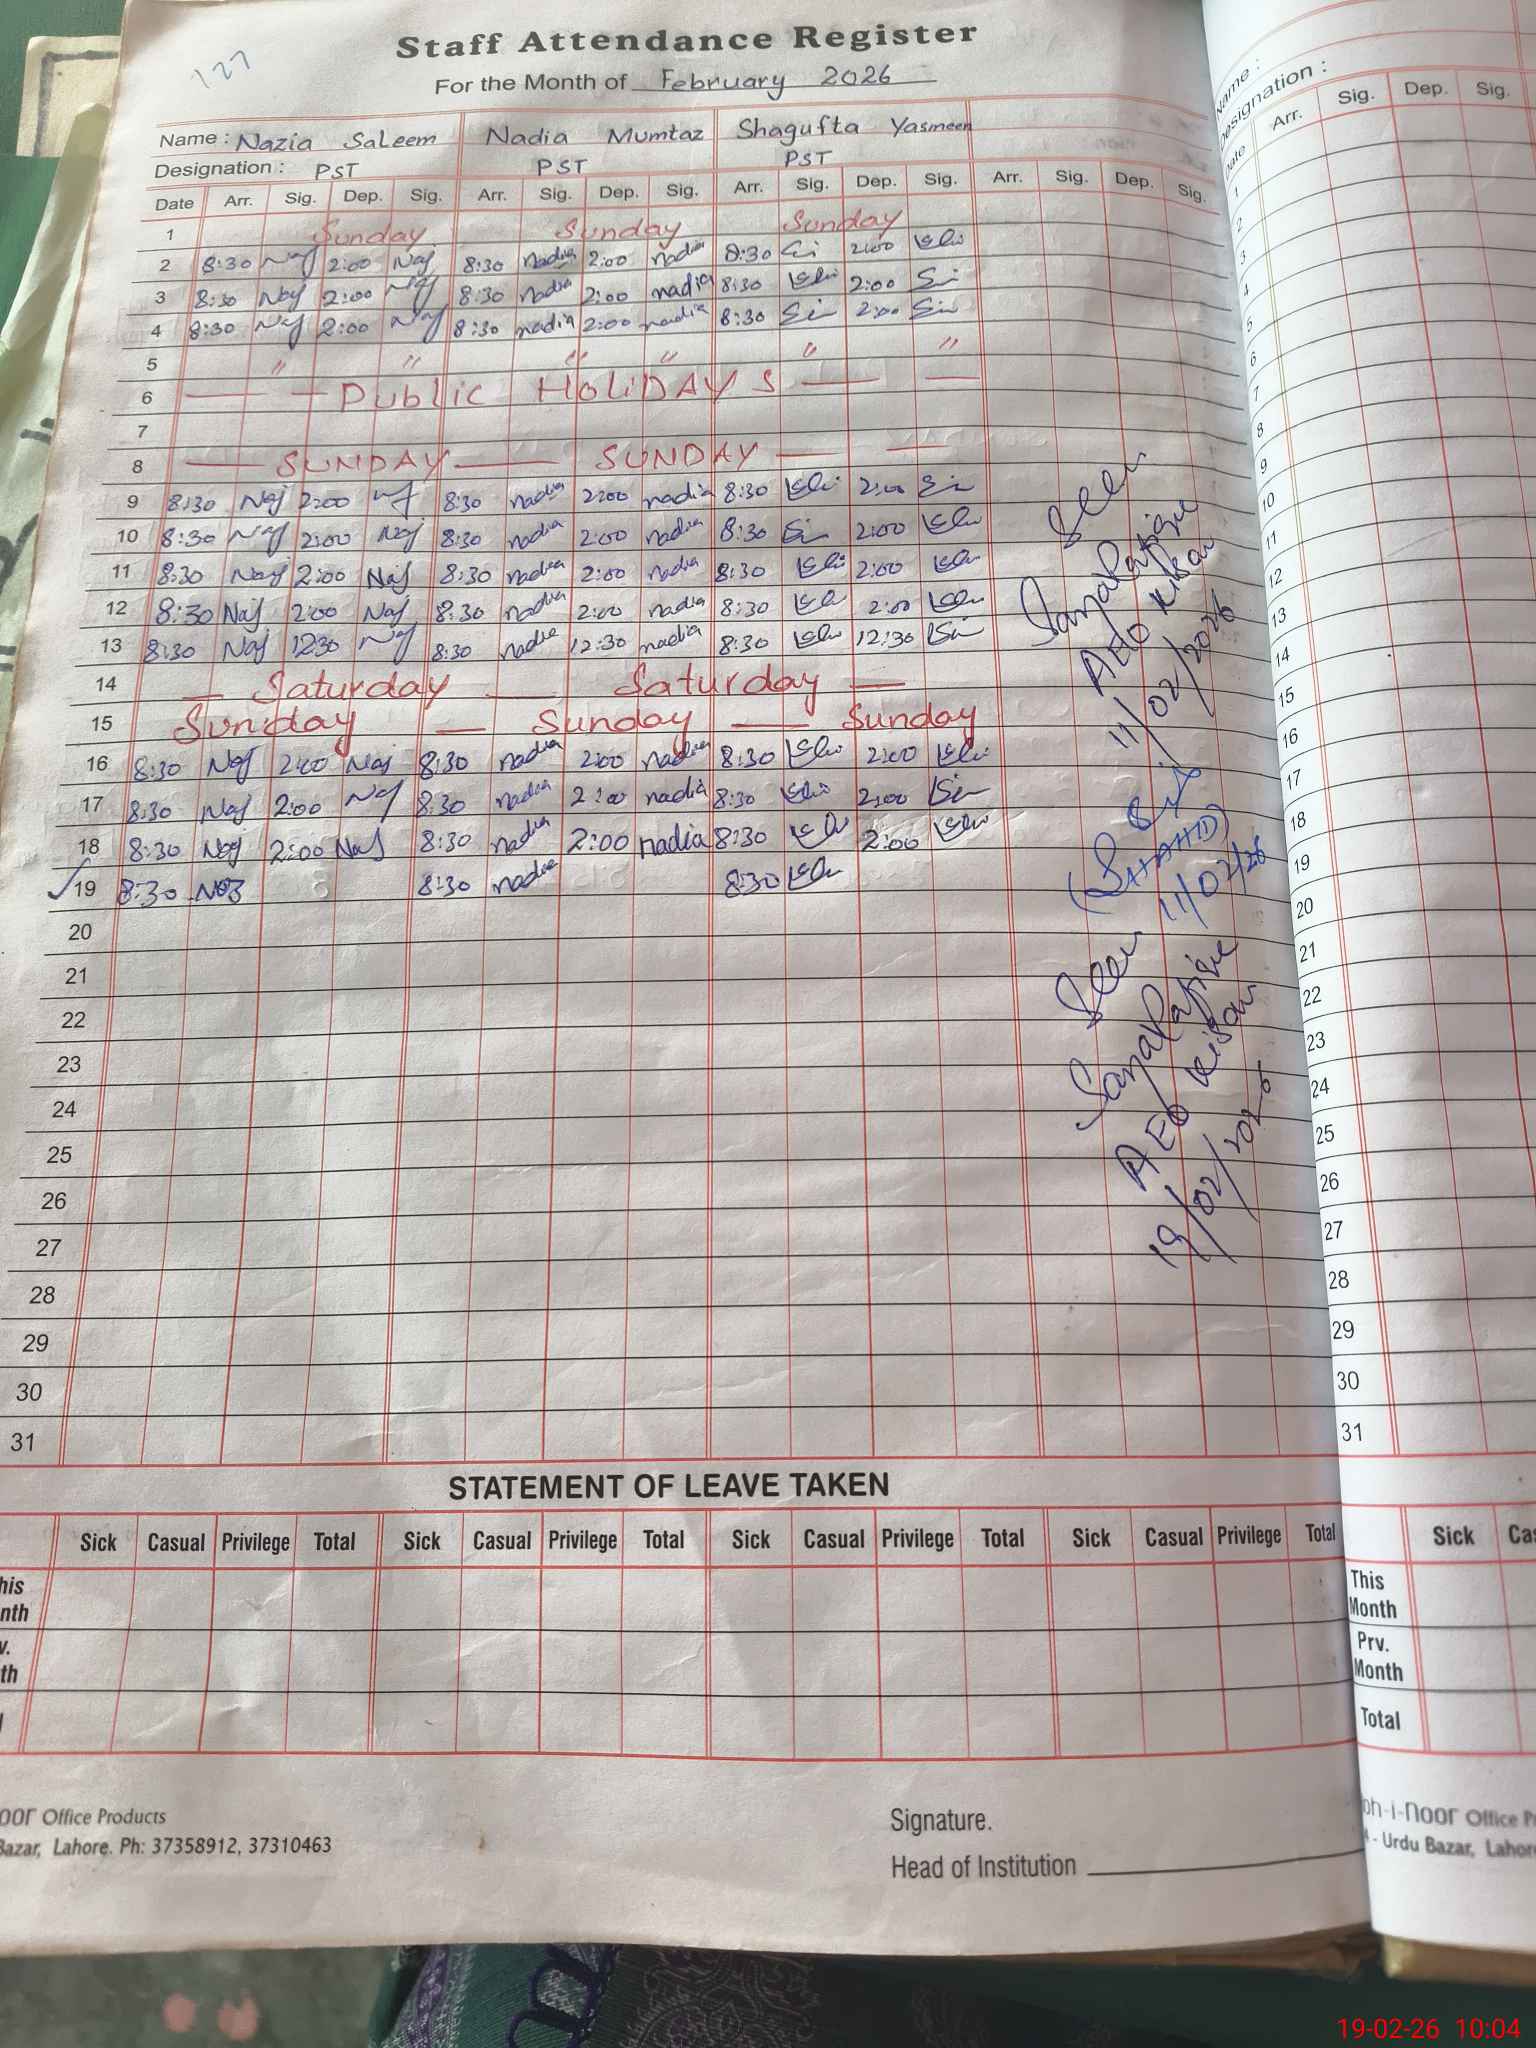 127
Staff Attendance Register
For the Month of February 2026
Name : Nazia Saleem Nadia Mumtaz Shagufta Yasmeen
Designation : PST PST PST
Date Arr. Sig. Dep. Sig. Arr. Sig. Dep. Sig. Arr. Sig. Dep. Sig. Arr. Sig. Dep. Sig.
1 Sunday Sunday Sunday
2 8:30 Naz 2:00 Naz 8:30 nadia 2:00 nadia 8:30 2:00
3 8:30 Naz 2:00 Naz 8:30 nadia 2:00 nadia 8:30 2:00
4 8:30 Naz 2:00 Naz 8:30 nadia 2:00 nadia 8:30 2:00
5 " " " " " "
6 Public HOLIDAYS
7
8 SUNDAY SUNDAY
9 8:30 Naz 2:00 8:30 nadia 2:00 nadia 8:30 2:00
10 8:30 Naz 2:00 Naz 8:30 nadia 2:00 nadia 8:30 2:00
11 8:30 Naz 2:00 Naz 8:30 nadia 2:00 nadia 8:30 2:00
12 8:30 Naz 2:00 Naz 8:30 nadia 2:00 nadia 8:30 2:00
13 8:30 Naz 1230 Naz 8:30 nadia 12:30 nadia 8:30 12:30
14 Saturday Saturday
15 Sunday Sunday Sunday
16 8:30 Naz 2:00 Naz 8:30 nadia 2:00 nadia 8:30 2:00
17 8:30 Naz 2:00 Naz 8:30 nadia 2:00 nadia 8:30 2:00
18 8:30 Naz 2:00 Naz 8:30 nadia 2:00 nadia 8:30 2:00
19 8:30 Naz 8:30 nadia 8:30
20
21
22
23
24
25
26
27
28
29
30
31
Seen
Sana Rafique
AEO
11/02/2026
(SHAHID)
11/02/26
Seen
Sana Rafique
AEO
19/02/2026
STATEMENT OF LEAVE TAKEN
Sick Casual Privilege Total Sick Casual Privilege Total Sick Casual Privilege Total Sick Casual Privilege Total
his
nth
v.
th
noor Office Products
Bazar, Lahore. Ph: 37358912, 37310463
Signature.
Head of Institution
Name :
Designation :
Date Arr. Sig. Dep. Sig.
1
2
3
4
5
6
7
8
9
10
11
12
13
14
15
16
17
18
19
20
21
22
23
24
25
26
27
28
29
30
31
Sick Cas
This
Month
Prv.
Month
Total
oh-i-noor Office P
- Urdu Bazar, Lahor
19-02-26 10:04